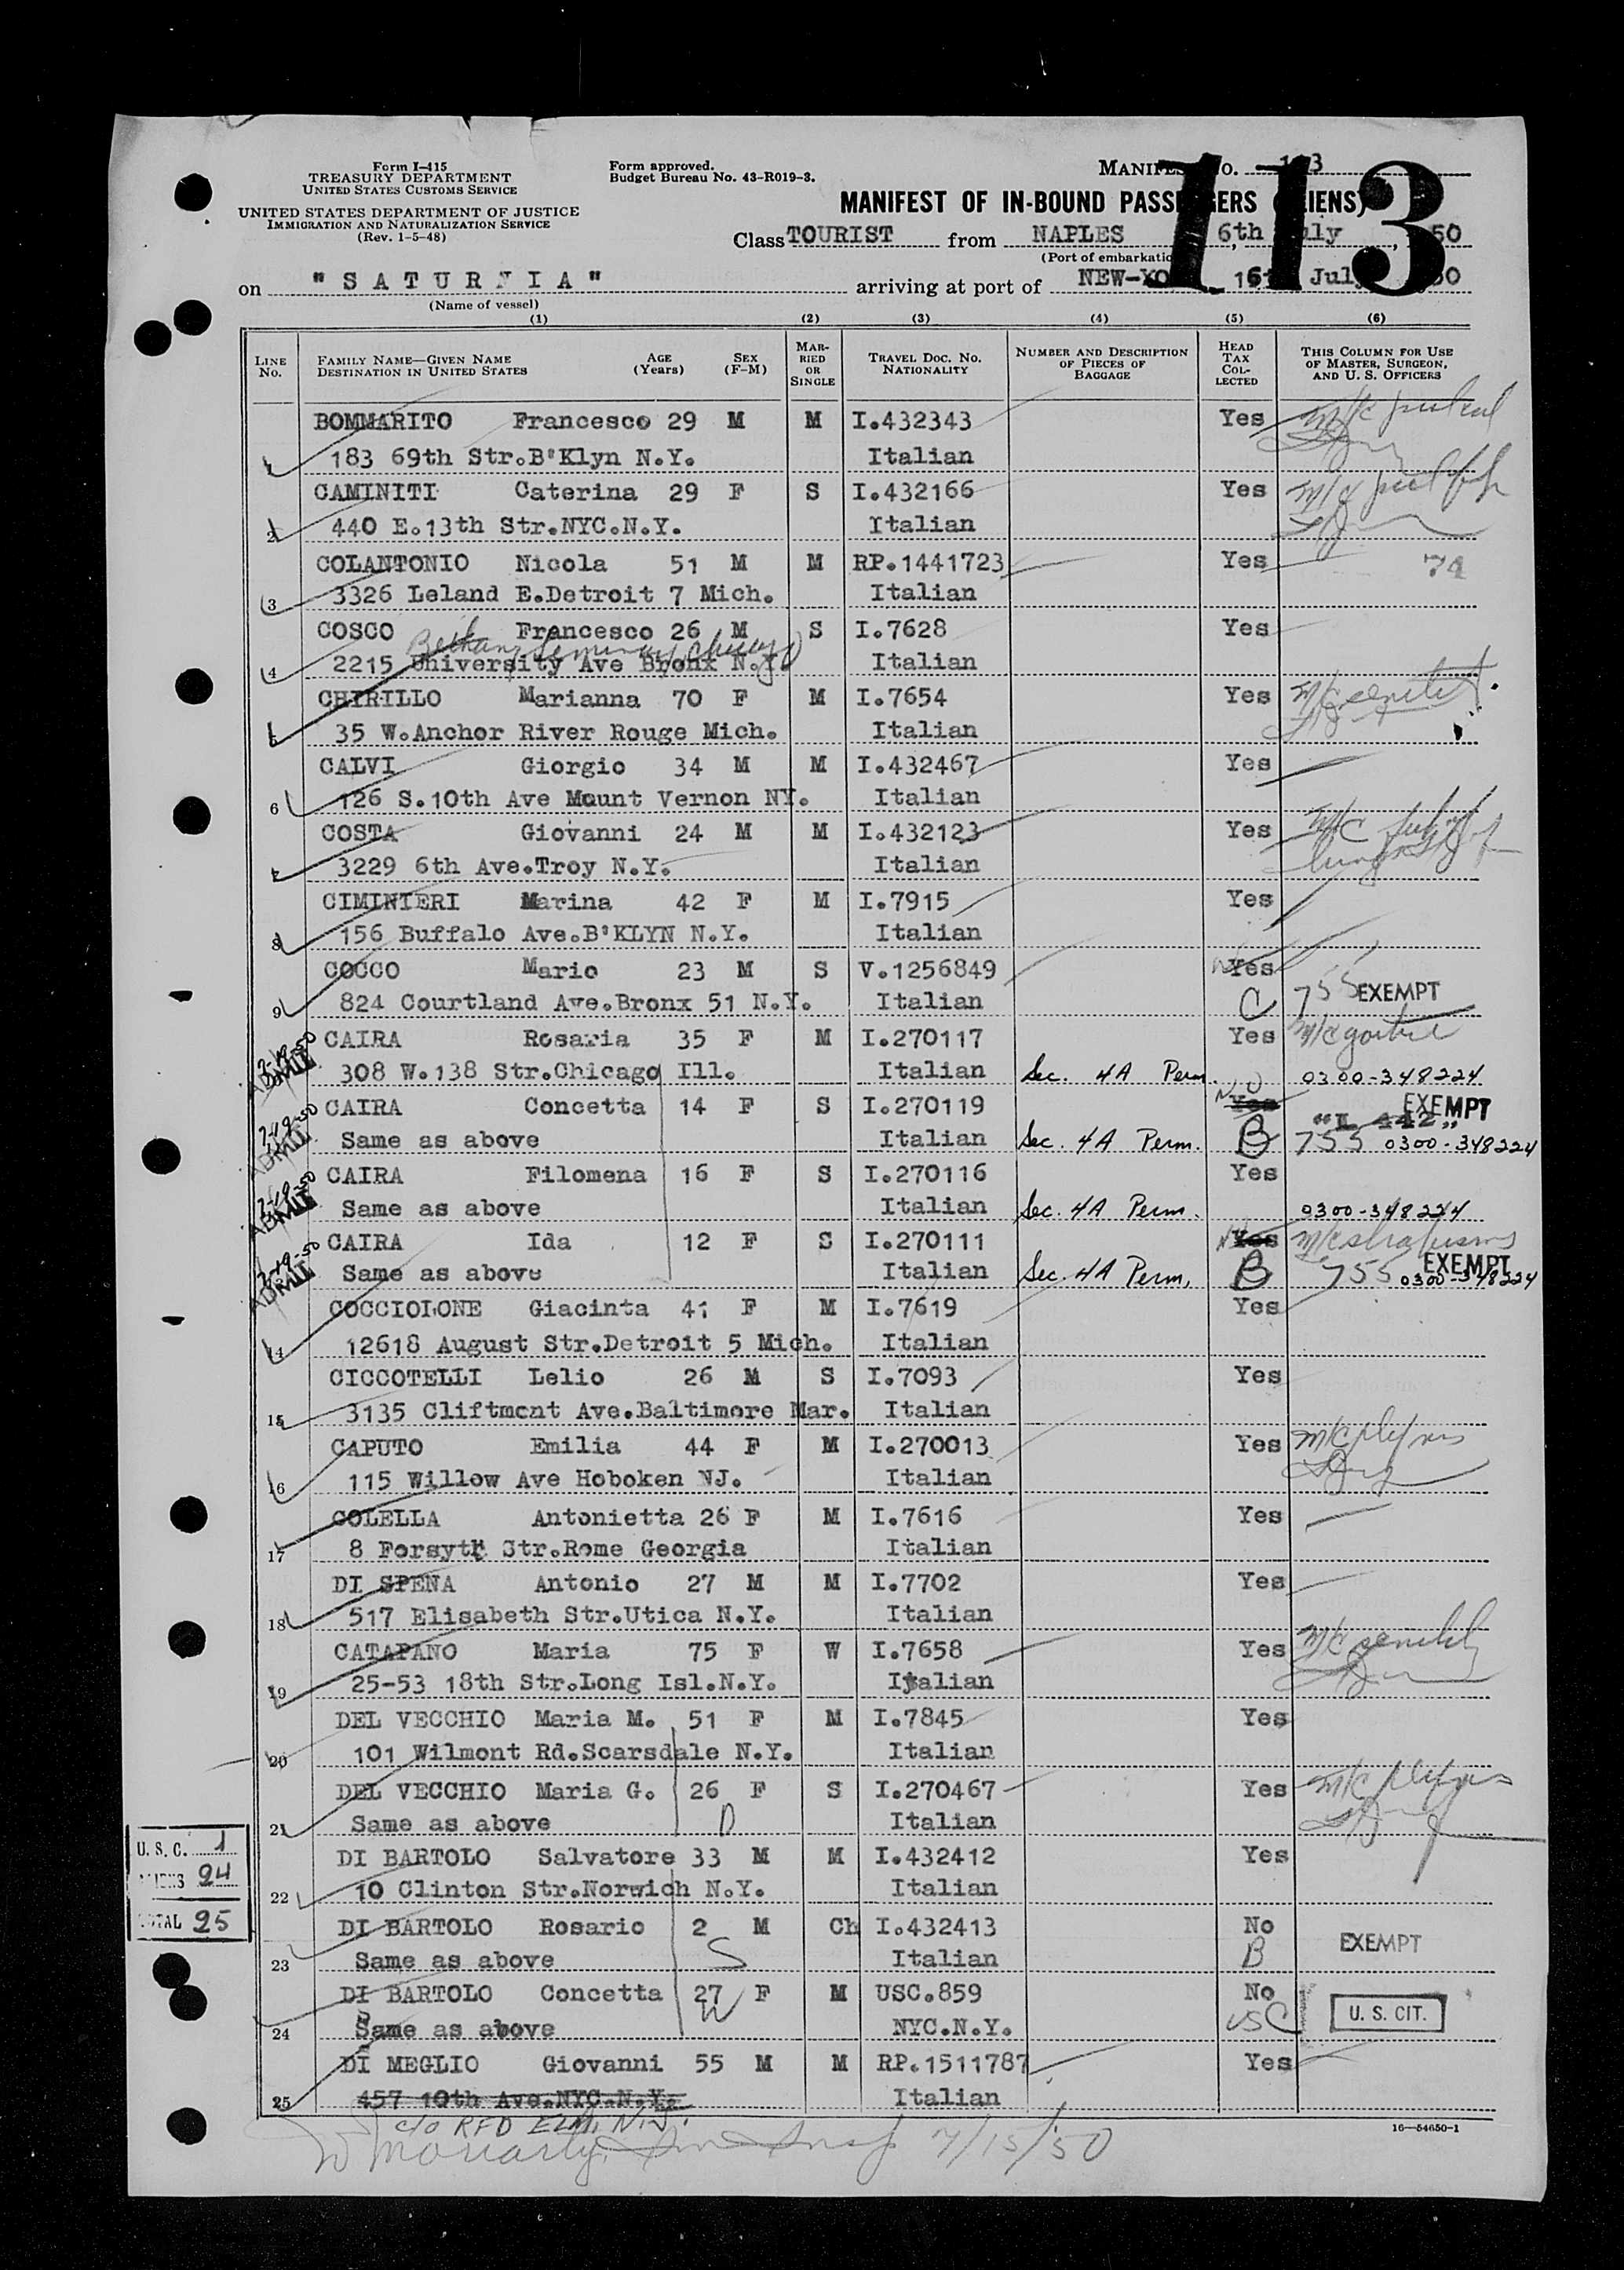 Form I-415
TREASURY DEPARTMENT
UNITED STATES CUSTOMS SERVICE
UNITED STATES DEPARTMENT OF JUSTICE
IMMIGRATION AND NATURALIZATION SERVICE
(Rev. 1-5-48)
Form approved.
Budget Bureau No. 43-R019-3.
113
MANIFEST OF IN-BOUND PASSENGERS (ALIENS)
Class TOURIST from NAPLES 6th July, 50
(Port of embarkation)
on "SATURNIA" arriving at port of NEW-YO 16th July 50
(Name of vessel)
(1) (2) (3) (4) (5) (6)
LINE No. FAMILY NAME—GIVEN NAME DESTINATION IN UNITED STATES AGE (Years) SEX (F-M) MARRIED OR SINGLE TRAVEL DOC. NO. NATIONALITY NUMBER AND DESCRIPTION OF PIECES OF BAGGAGE HEAD TAX COLLECTED THIS COLUMN FOR USE OF MASTER, SURGEON, AND U. S. OFFICERS
BOMMARITO Francesco 29 M M I.432343 Yes
1 183 69th Str.B'Klyn N.Y. Italian
CAMINITI Caterina 29 F S I.432166 Yes
2 440 E.13th Str.NYC.N.Y. Italian
COLANTONIO Nicola 51 M M RP.1441723 Yes 74
3 3326 Leland E.Detroit 7 Mich. Italian
COSCO Francesco 26 M S I.7628 Yes
Bethany Seminary Chicago
4 2215 University Ave Bronx N.Y. Italian
CHIRILLO Marianna 70 F M I.7654 Yes M/C senility
5 35 W.Anchor River Rouge Mich. Italian
CALVI Giorgio 34 M M I.432467 Yes
6 126 S.10th Ave Mount Vernon NY. Italian
COSTA Giovanni 24 M M I.432123 Yes M/C
7 3229 6th Ave.Troy N.Y. Italian
CIMINIERI Marina 42 F M I.7915 Yes
8 156 Buffalo Ave.B'KLYN N.Y. Italian
COCCO Mario 23 M S V.1256849 Yes
9 824 Courtland Ave.Bronx 51 N.Y. Italian C 755 EXEMPT
CAIRA Rosaria 35 F M I.270117 Yes M/C goitre
7-19-50 ADMIT 308 W.138 Str.Chicago Ill. Italian Sec. 4A Perm. 0300-348224
CAIRA Concetta 14 F S I.270119 No Yes EXEMPT "L 442"
7-19-50 ADMIT Same as above Italian Sec. 4A Perm. B 755 0300-348224
CAIRA Filomena 16 F S I.270116 Yes
7-19-50 ADMIT Same as above Italian Sec. 4A Perm. 0300-348224
CAIRA Ida 12 F S I.270111 Yes M/C strabismus
7-19-50 ADMIT Same as above Italian Sec. 4A Perm. B 755 EXEMPT 0300-348224
COCCIOLONE Giacinta 41 F M I.7619 Yes
14 12618 August Str.Detroit 5 Mich. Italian
CICCOTELLI Lelio 26 M S I.7093 Yes
15 3135 Cliftmont Ave.Baltimore Mar. Italian
CAPUTO Emilia 44 F M I.270013 Yes M/C
16 115 Willow Ave Hoboken NJ. Italian
COLELLA Antonietta 26 F M I.7616 Yes
17 8 Forsyth Str.Rome Georgia Italian
DI SPENA Antonio 27 M M I.7702 Yes
18 517 Elisabeth Str.Utica N.Y. Italian
CATAPANO Maria 75 F W I.7658 Yes M/C senility
19 25-53 18th Str.Long Isl.N.Y. Italian
DEL VECCHIO Maria M. 51 F M I.7845 Yes
20 101 Wilmont Rd.Scarsdale N.Y. Italian
DEL VECCHIO Maria G. 26 F S I.270467 Yes M/C
21 Same as above D Italian
DI BARTOLO Salvatore 33 M M I.432412 Yes
22 10 Clinton Str.Norwich N.Y. Italian
DI BARTOLO Rosario 2 M Ch I.432413 No
23 Same as above S Italian B EXEMPT
DI BARTOLO Concetta 27 F M USC.859 No
24 Same as above W NYC.N.Y. USC U. S. CIT.
DI MEGLIO Giovanni 55 M M RP.1511787 Yes
25 457 10th Ave.NYC.N.Y. Italian
c/o RFD ELM, N.J.
U. S. C. 1
ALIENS 24
TOTAL 25
W Moriarty 7/15/50
16—54650-1